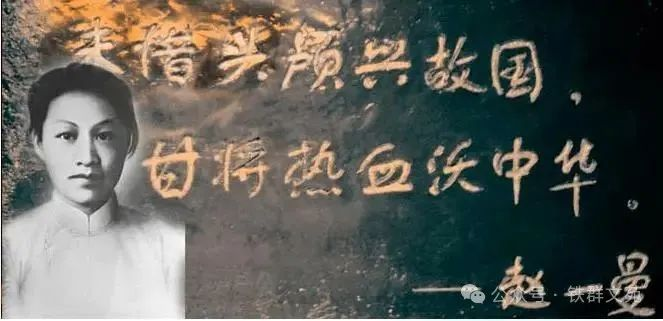 未惜头颅兴故国，
甘将热血沃中华。
—赵一曼
公众号·铁群文苑